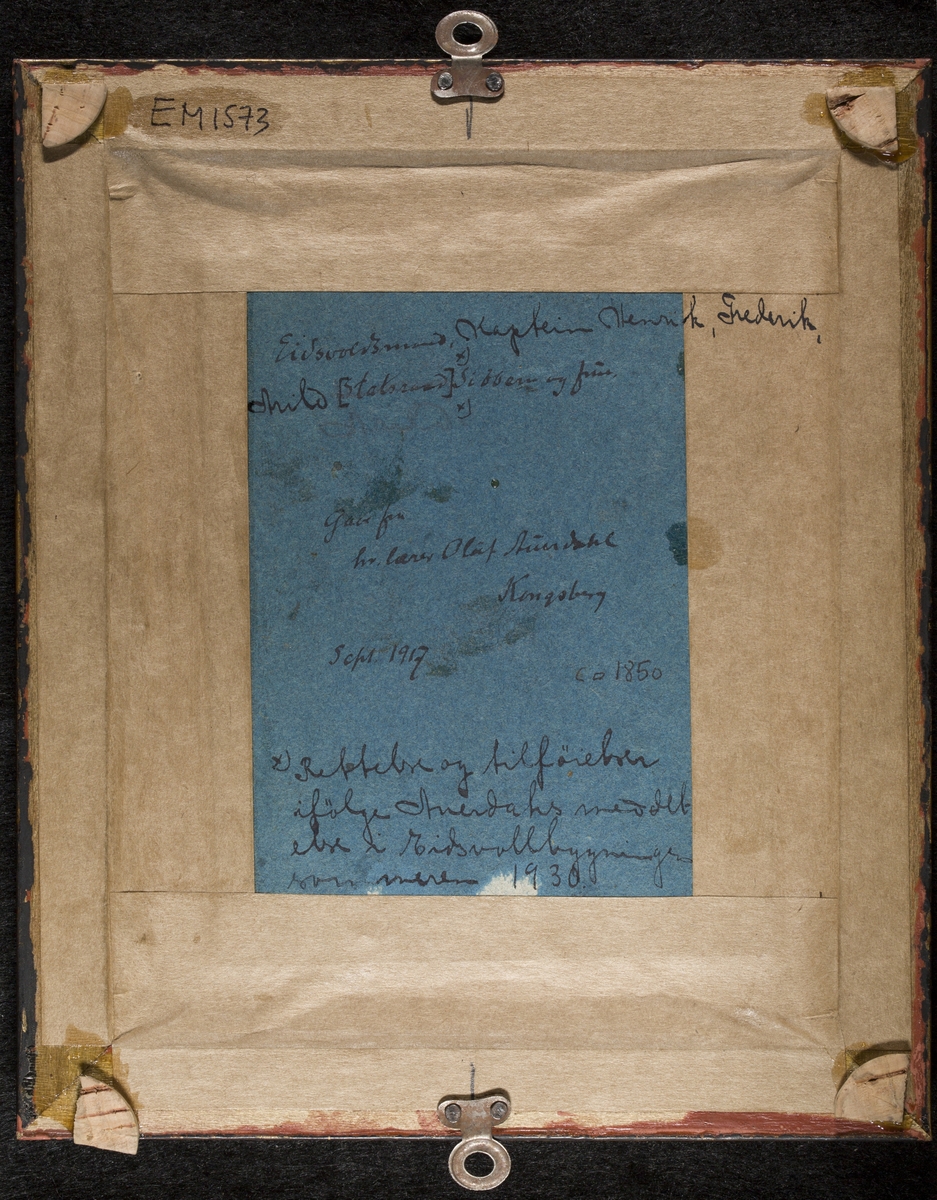 EM1573
Eidsvoldsmand, Kaptein Henrick, Frederik,
x)
Arild [Statsraad] Sibbern og frue.
x)
Gave fra
hr. lærer Olaf Auerdahl
Kongsberg
Sept 1917
ca 1850
x) Rettelse og tilföielser
ifölge Auerdahls meddel
else i Eidsvollbygningen
sommeren 1930.